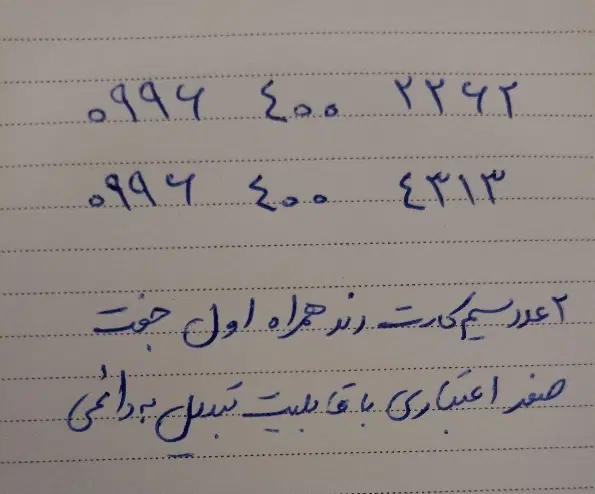 ۰۹۹۶ ۴۰۰ ۲۲۶۲
۰۹۹۶ ۴۰۰ ۴۳۱۳
۲ عدد سیم کارت رند همراه اول جفت
صفر اعتباری با قابلیت تبدیل به دائمی